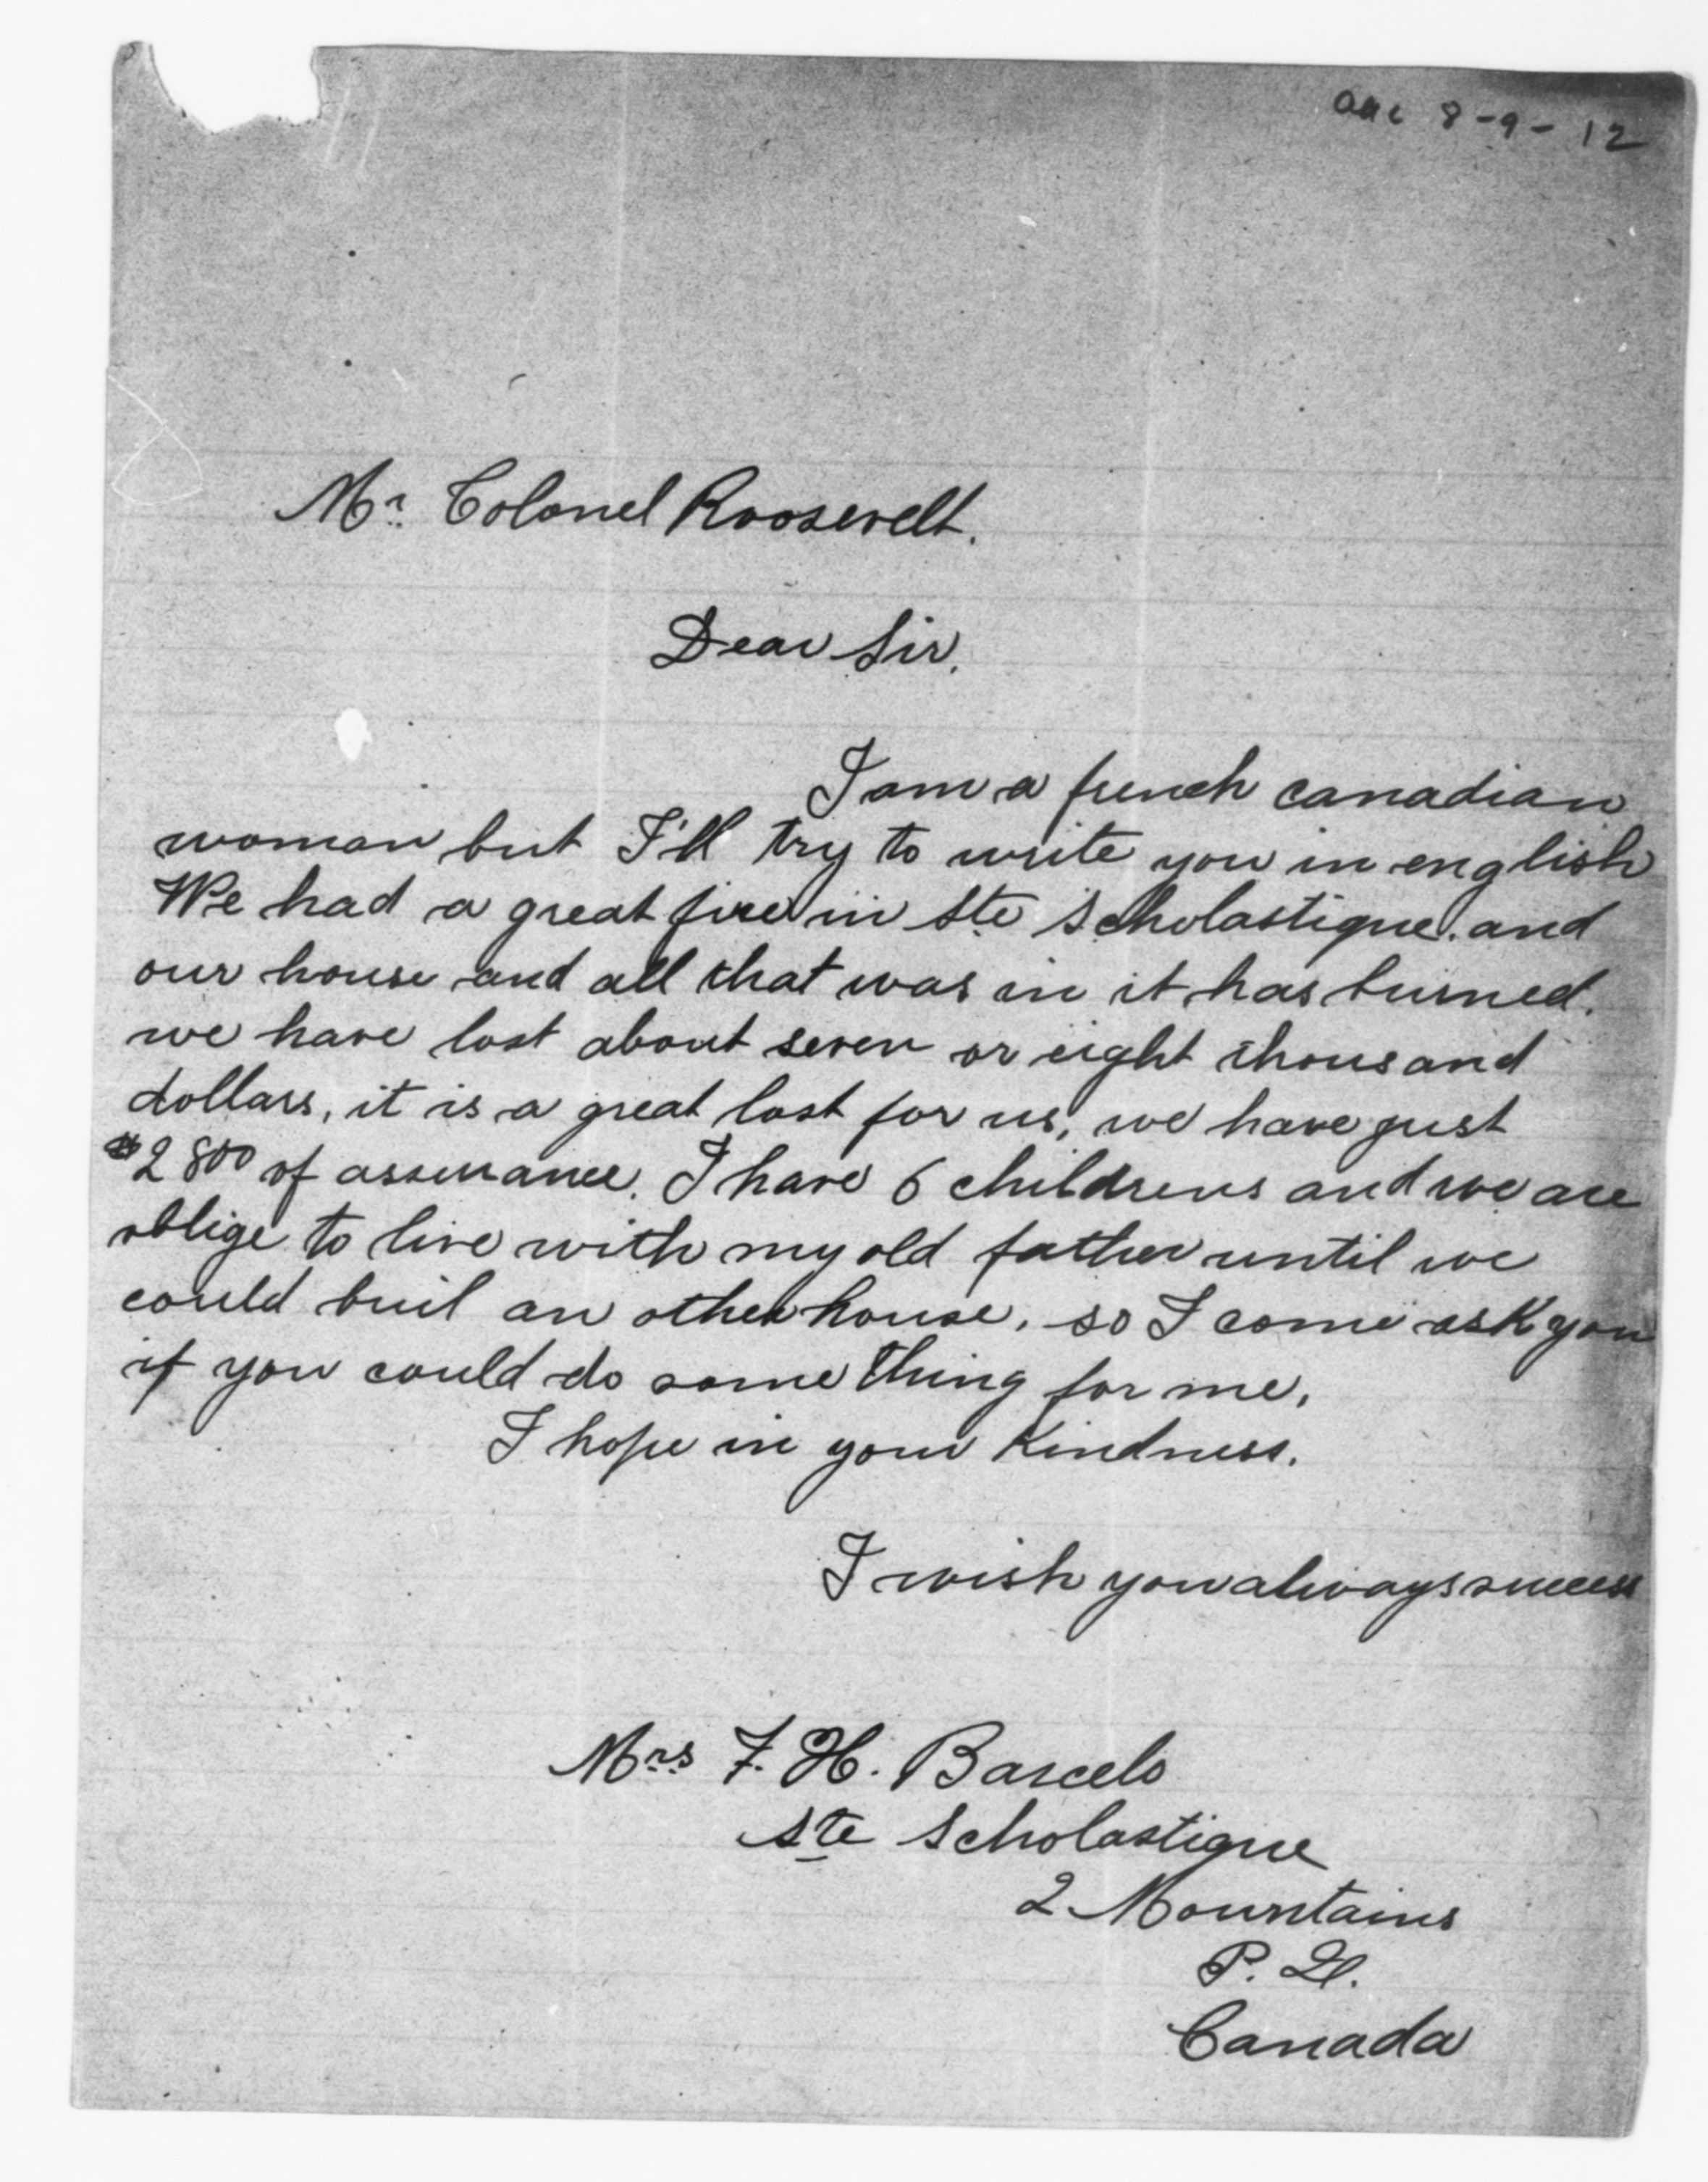 8-9-12
Mr. Colonel Roosevelt.
Dear Sir.
I am a french canadian
woman but I'll try to write you in english
We had a great fire in Ste Scholastique. and
our house and all that was in it has burned.
we have lost about seven or eight thousand
dollars, it is a great lost for us, we have just
$2800 of assurance. I have 6 childrens and we are
oblige to live with my old father until we
could buil an other house, so I come ask you
if you could do some thing for me,
I hope in your kindness.
I wish you always success
Mrs F. H. Barcelo
Ste Scholastique
2 Mountains
P. Q.
Canada